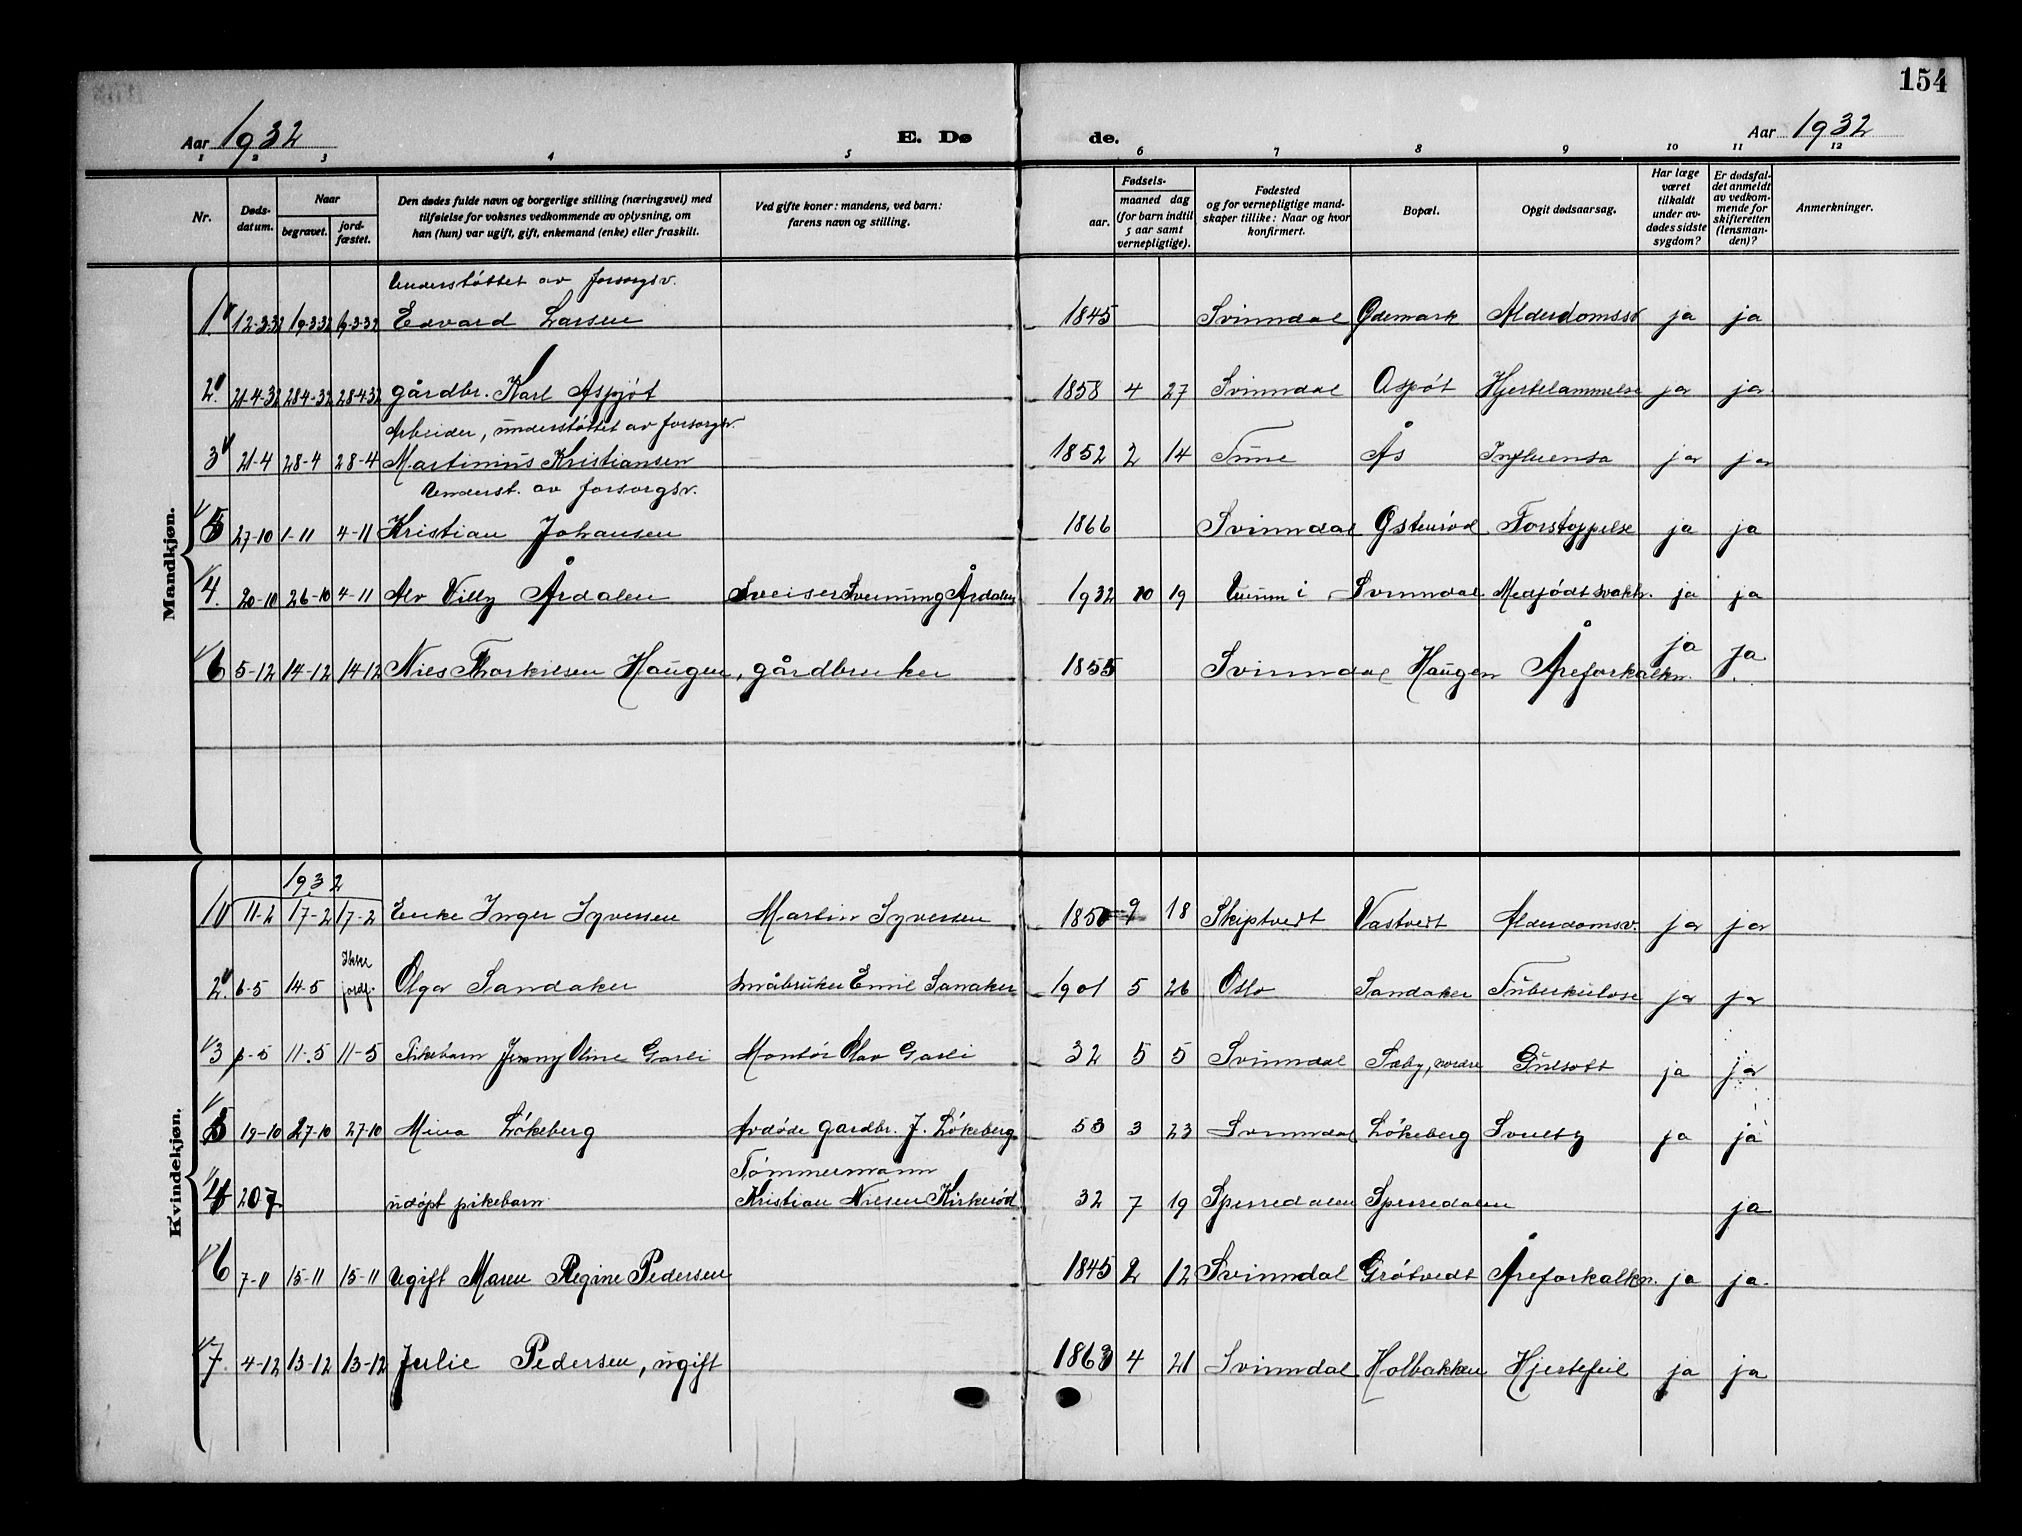 154
Aar 1932 E. Dø de. Aar 1932
1 2 3 4 5 6 7 8 9 10 11 12
Nr. Døds-datum. Naar begravet. jord-fæstet. Den dødes fulde navn og borgerlige stilling (næringsvei) med tilføielse for voksnes vedkommende av oplysning, om han (hun) var ugift, gift, enkemand (enke) eller fraskilt. Ved gifte koner: mandens, ved barn: farens navn og stilling. Fødsels- aar. maaned dag (for barn indtil 5 aar samt vernepligtige). Fødested og for vernepligtige mand-skaper tillike: Naar og hvor konfirmert. Bopæl. Opgit dødsaarsag. Har læge været tilkaldt under av-dødes sidste sygdom? Er dødsfal-det anmeldt av vedkom-mende for skifteretten (lensman-den)? Anmerkninger.
Mandkjøn.
Understøttet av forsorgsv.
1. 12-3-32 19-3-32 19-3-32 Edvard Larsen 1845 Svinndal Ødemark Alderdomssv. ja ja
2. 21-4-32 28-4-32 28-4-32 gårdbr. Karl Aspjøt 1858 4 27 Svinndal Aspøt Hjertelammelse ja ja
Arbeider, understøttet av forsorgsv.
3 21-4 28-4 28-4 Martinius Kristiansen 1852 2 14 Tune Ås Influensa ja ja
Underst. av forsorgsv.
5 27-10 1-11 4-11 Kristian Johansen 1866 Svinndal Østenrød Forstoppelse ja ja
4. 20-10 26-10 4-11 Alv Villy Årdalen Sveiser Sveinung Årdalen 1932 10 19 i Svinndal Medfødt svakh. ja ja
6 5-12 14-12 14-12 Nils Thorkilsen Haugen, gårdbruker 1855 Svinndal Haugen Åreforkalkn. ja ja.
Kvindekjøn.
1932
1 11-2 17-2 17-2 Enke Inger Syversen Martin Syversen 1850 9 18 Skiptvedt Vastvedt Alderdomsv. ja ja
2. 6-5 14-5 Ikke jordf. Olga Sandaker Småbruker Emil Sanaker 1901 5 26 Oslo Sandaker Tuberkulose ja ja
3 11-5 11-5 Pikebarn Jenny Oline Garli Montør Olav Garli 32 5 5 Svinndal Sæby, nordre Gulsott ja ja
5 19-10 27-10 27-10 Mina Løkeberg Avdøde gardbr. J. Løkeberg 53 3 23 Svinndal Løkeberg ja ja
Tømmermann
4 20 7. udøpt pikebarn Kristian Nilsen Kirkerød 32 7 19 Sperredalen Sperredalen ja
6 7-11 15-11 15-11 Ugift Maren Regine Pedersen 1845 2 12 Svinndal Grøtvedt Åreforkalkn. ja ja.
7. 4-12 13-12 13-12 Julie Pedersen, ugift 1863 4 21 Svinndal Holbakken Hjertefeil ja ja